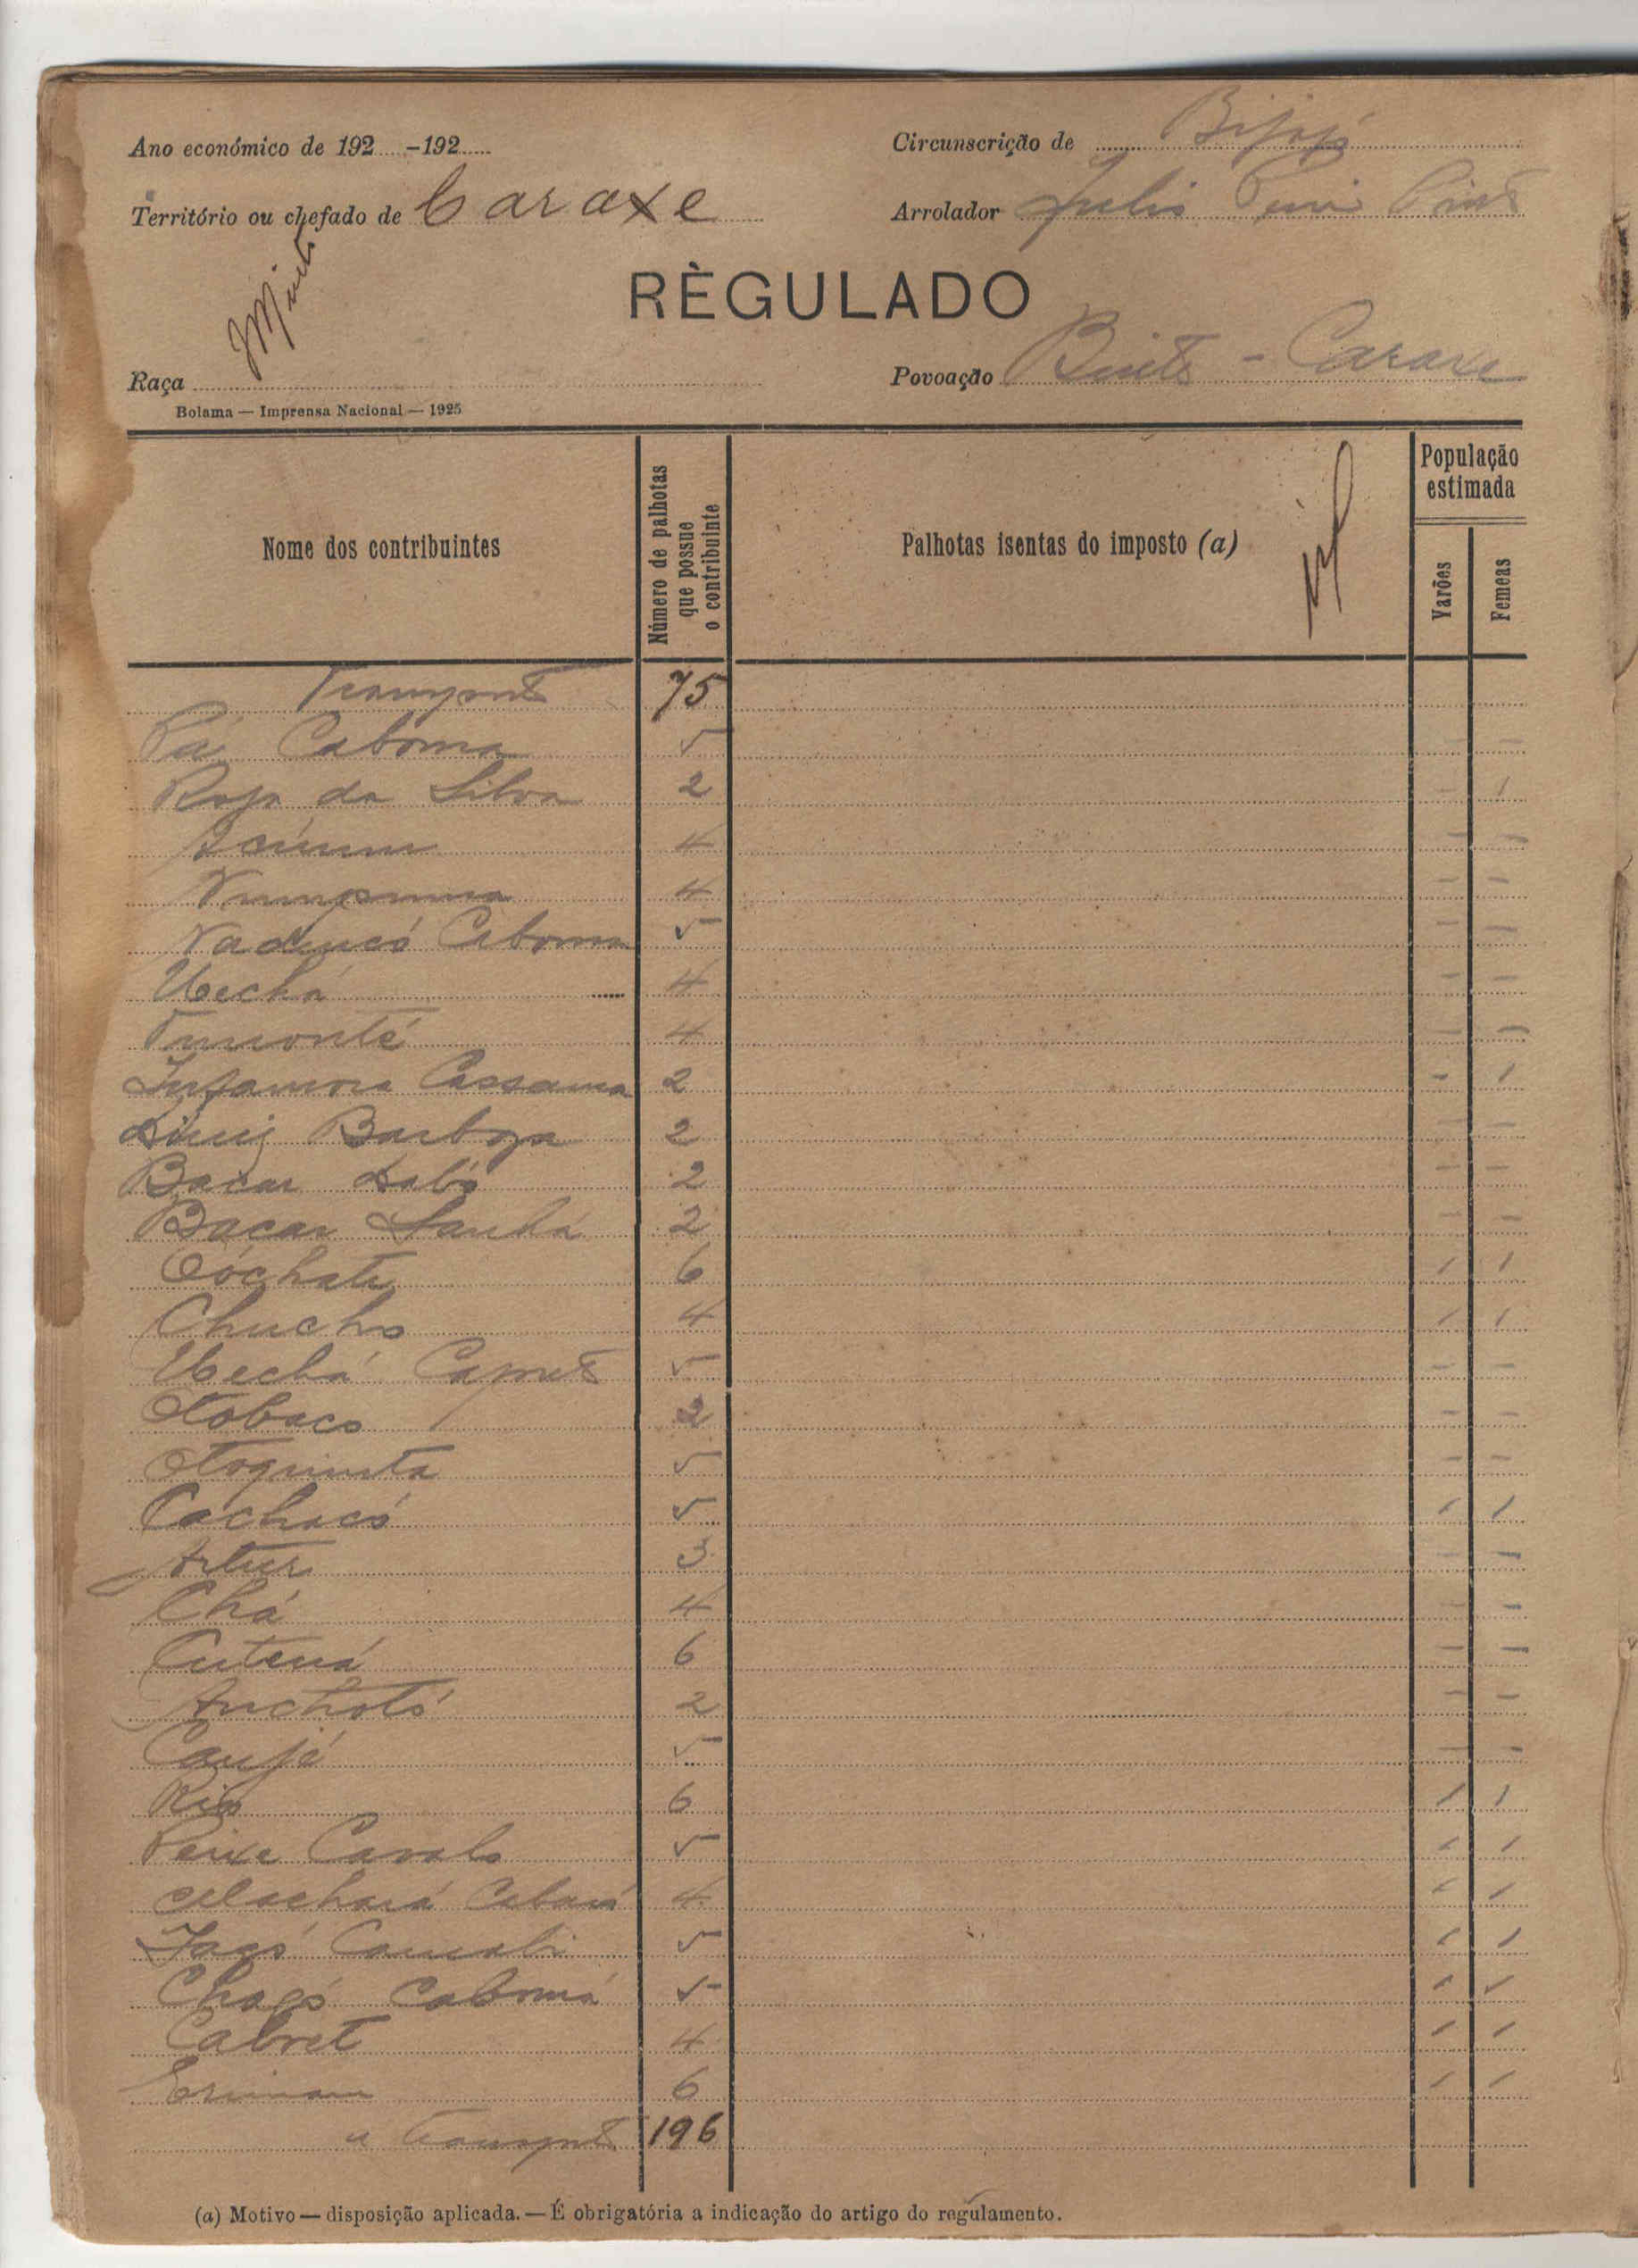 Ano económico de 192 -192
Circunscrição de Bijojó
Território ou chefado de Caraxe
Arrolador Julio Pinto
RÈGULADO
Raça
Povoação - Caraxe
Bolama — Imprensa Nacional — 1925
Nome dos contribuintes
Número de palhotas que possue o contribuinte
Palhotas isentas do imposto (a)
População estimada
Varões
Femeas
Transporte 75
Pá Caboma 5
Rosa da Silva 2 - 1
4 - -
4 - -
Caboma 5 - -
Uechá 4 - -
4 - -
Infamora Cassama 2 - 1
Barboza 2 - -
Bacar Dabó 2 - -
Bacar Sanhá 2 - -
Cóchate 6 1 1
Chucho 4 1 1
Uechá 5 - -
Otobaco 2 - -
5 - -
Cachacó 5 1 1
Artur 3 - -
Chá 4 - -
Cutená 6 - -
Anchotó 2 - -
Canjá 5 - -
Rio 6 1 1
Peixe Cavalo 5 1 1
4 1 1
5 1 1
Chagó Cabomá 5 1 1
Cabret 4 1 1
6 1 1
a Transporte 196
(a) Motivo — disposição aplicada. — É obrigatória a indicação do artigo do regulamento.